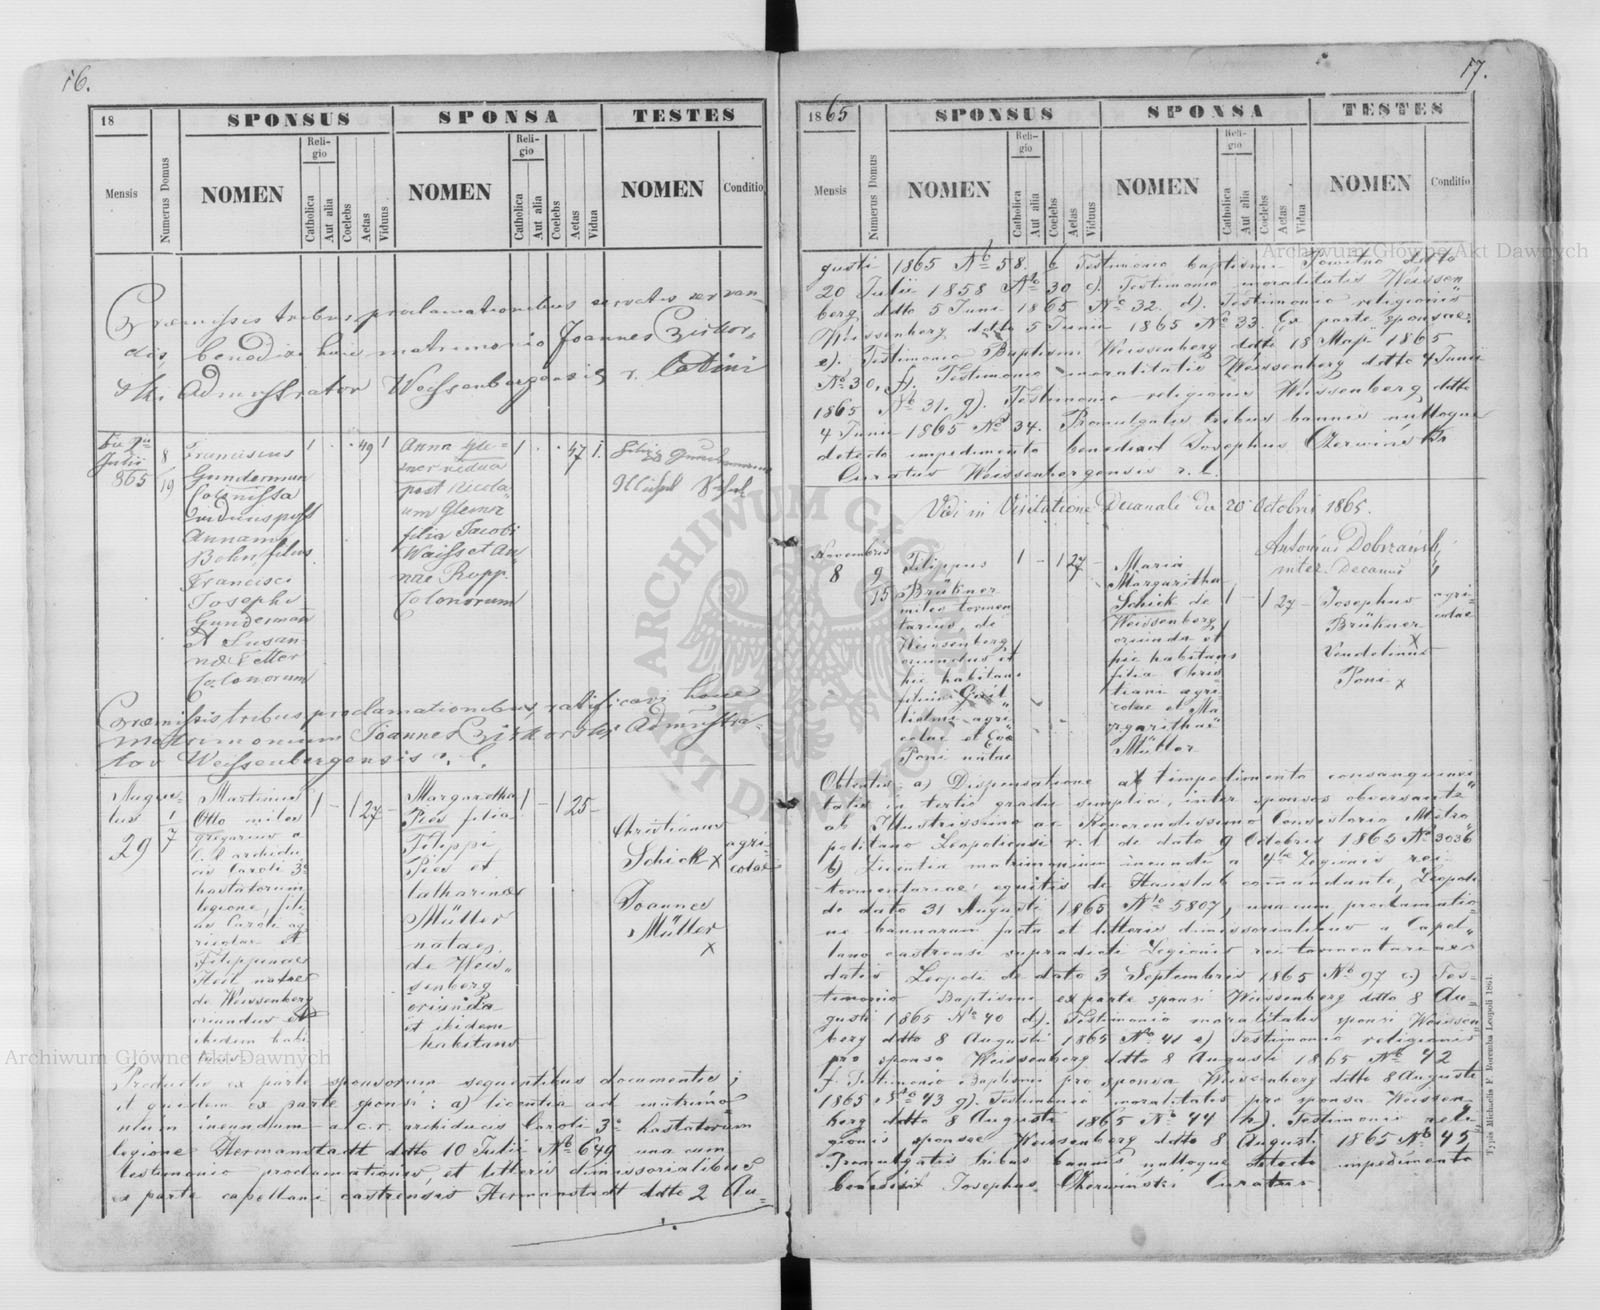 16.
18
SPONSUS
SPONSA
TESTES
Mensis
Numerus Domus
NOMEN
Religio
Catholica
Aut alia
Coelebs
Aetas
Viduus
NOMEN
Religio
Catholica
Aut alia
Coelebs
Aetas
Vidua
NOMEN
Conditio
Praemissis tribus proclamationibus
benedixi huic matrimonio Joannes
Administrator Weissenbergensis r. latini
Julii
865
8
19
Franciscus
Gunderman
Colonista
viduus post
Annam
Bohn, filius
Francisci
Josephi
Gunderman
et Susan-
nae Vetter
Colonorum
1 . . 49 1
Anna Gle-
sner vidua
post Nicola-
um Glesner
filia Jacobi
Waiss et An-
nae Rupp.
Colonorum
1 . . 47 1.
Praemissis tribus proclamationibus, ratificavi hocce
matrimonium Joannes Administra-
tor Weissenbergensis r. l.
Augus-
tus
29
1
7
Martinus
Otto miles
gregarius a
C. R. archidu-
cis Caroli 3o
hastatorum
legione, fili-
us Caroli ag-
ricolae et
Filippinae
Heil natae
de Weissenberg
oriundus et
ibidem habi-
tans
1 – 1 27 –
Margaretha
Pies filia
Filippi
Pies et
Catharinae
Müller
natae,
de Weis-
senberg
oriunda
et ibidem
habitans
1 – 1 25 –
Christianus
Schick x
Joannes
Müller
x
agri-
colae
Productis ex parte sponsorum sequentibus documentis;
et quidem ex parte sponsi: a) licentia ad matrimo-
nium ineundum a c. r. archiducis Caroli 3o hastatorum
legione Hermanstadt ddto 10 Julii No 649 una cum
testimonio proclamationis, et litteris dimissorialibus
ex parte capellani castrensis Hermanstadt ddto 2 Au-
17.
1865
SPONSUS
SPONSA
TESTES
Mensis
Numerus Domus
NOMEN
Religio
Catholica
Aut alia
Coelebs
Aetas
Viduus
NOMEN
Religio
Catholica
Aut alia
Coelebs
Aetas
Vidua
NOMEN
Conditio
gusti 1865 No 58. b Testimonio baptismi ddto
20 Julii 1858 No 30 c). Testimonio moralitatis Weissen-
berg ddto 5 Juni 1865 No 32. d). Testimonio religionis
Weissenberg ddto 5 Junii 1865 No 33. Ex parte sponsae:
e). Testimonio Baptismi Weissenberg ddto 18 Maji 1865
No 30, f). Testimonio moralitatis Weissenberg ddto 4 Junii
1865 No 31. g). Testimonio religionis Weissenberg ddto
4 Junii 1865 No 34. Promulgatis tribus bannis nulloque
detecto impedimento benedixit Josephus Czerwiński
Curatus Weissenbergensis r. l.
Vidi in Visitatione Decanali die 20 Octobris 1865.
Antonius Dobrzański
inter. Decanus
Novembris
8
9
15
Filippus
Brükner
miles tormen
tarius, de
Weissenberg
oriundus et
hic habitans
filius Gott
liebus agri-
colae et Eva
Poni natae
1 – 1 27 –
Maria
Margaritha
Schick de
Weissenberg,
oriunda et
hic habitans
filia Chris
tiani agri-
colae et Ma-
rgarithae
Müller
1 – 1 27 –
Josephus
Brükner
x
Vendelinus
Poni x
agri-
colae
Obtentis: a) Dispensatione ab impedimento consanguini-
tatis in tertio gradu simplici, inter sponsos observante
ab Illustrissimo ac Reverendissimo Consistorio Metro-
politano Leopoliensi r. l. de dato 9 Octobris 1865 No 3036
b) Licentia matrimonium ineundi a Legionis rei
tormentariae equitis de Hauslab commandante, Leopoli
de dato 31 Augusti 1865 No 5807, una cum proclamatio-
ne bannorum facta et litteris dimissorialibus a Capel-
lano castrensi supradicti Legionis rei tormentariae
datis Leopoli de dato 3 Septembris 1865 No 97 c.) Tes-
timonio Baptismi ex parte sponsi Weissenberg ddto 8 Au-
gusti 1865 No 40 d). Testimonio moralitatis sponsi Weissen-
berg ddto 8 Augusti 1865 No 41 e) Testimonio religionis
pro sponso Weissenberg ddto 8 Augusti 1865 No 42
f. Testimonio Baptismi pro sponsa Weissenberg ddto 8 Augusti
1865 No 43 g). Testimonio moralitatis pro sponsa Weissen-
berg ddto 8 Augusti 1865 No 44 (h). Testimonio reli-
gionis sponsae Weissenberg ddto 8 Augusti 1865 No 45
Promulgatis tribus bannis nulloque detecto impedimento
benedixit Josephus Czerwiński Curatus.
Typis Michaelis F. Poremba Leopoli 1861.
Archiwum Główne Akt Dawnych
Archiwum Główne Akt Dawnych
ARCHIWUM GŁÓWNE AKT DAWNYCH